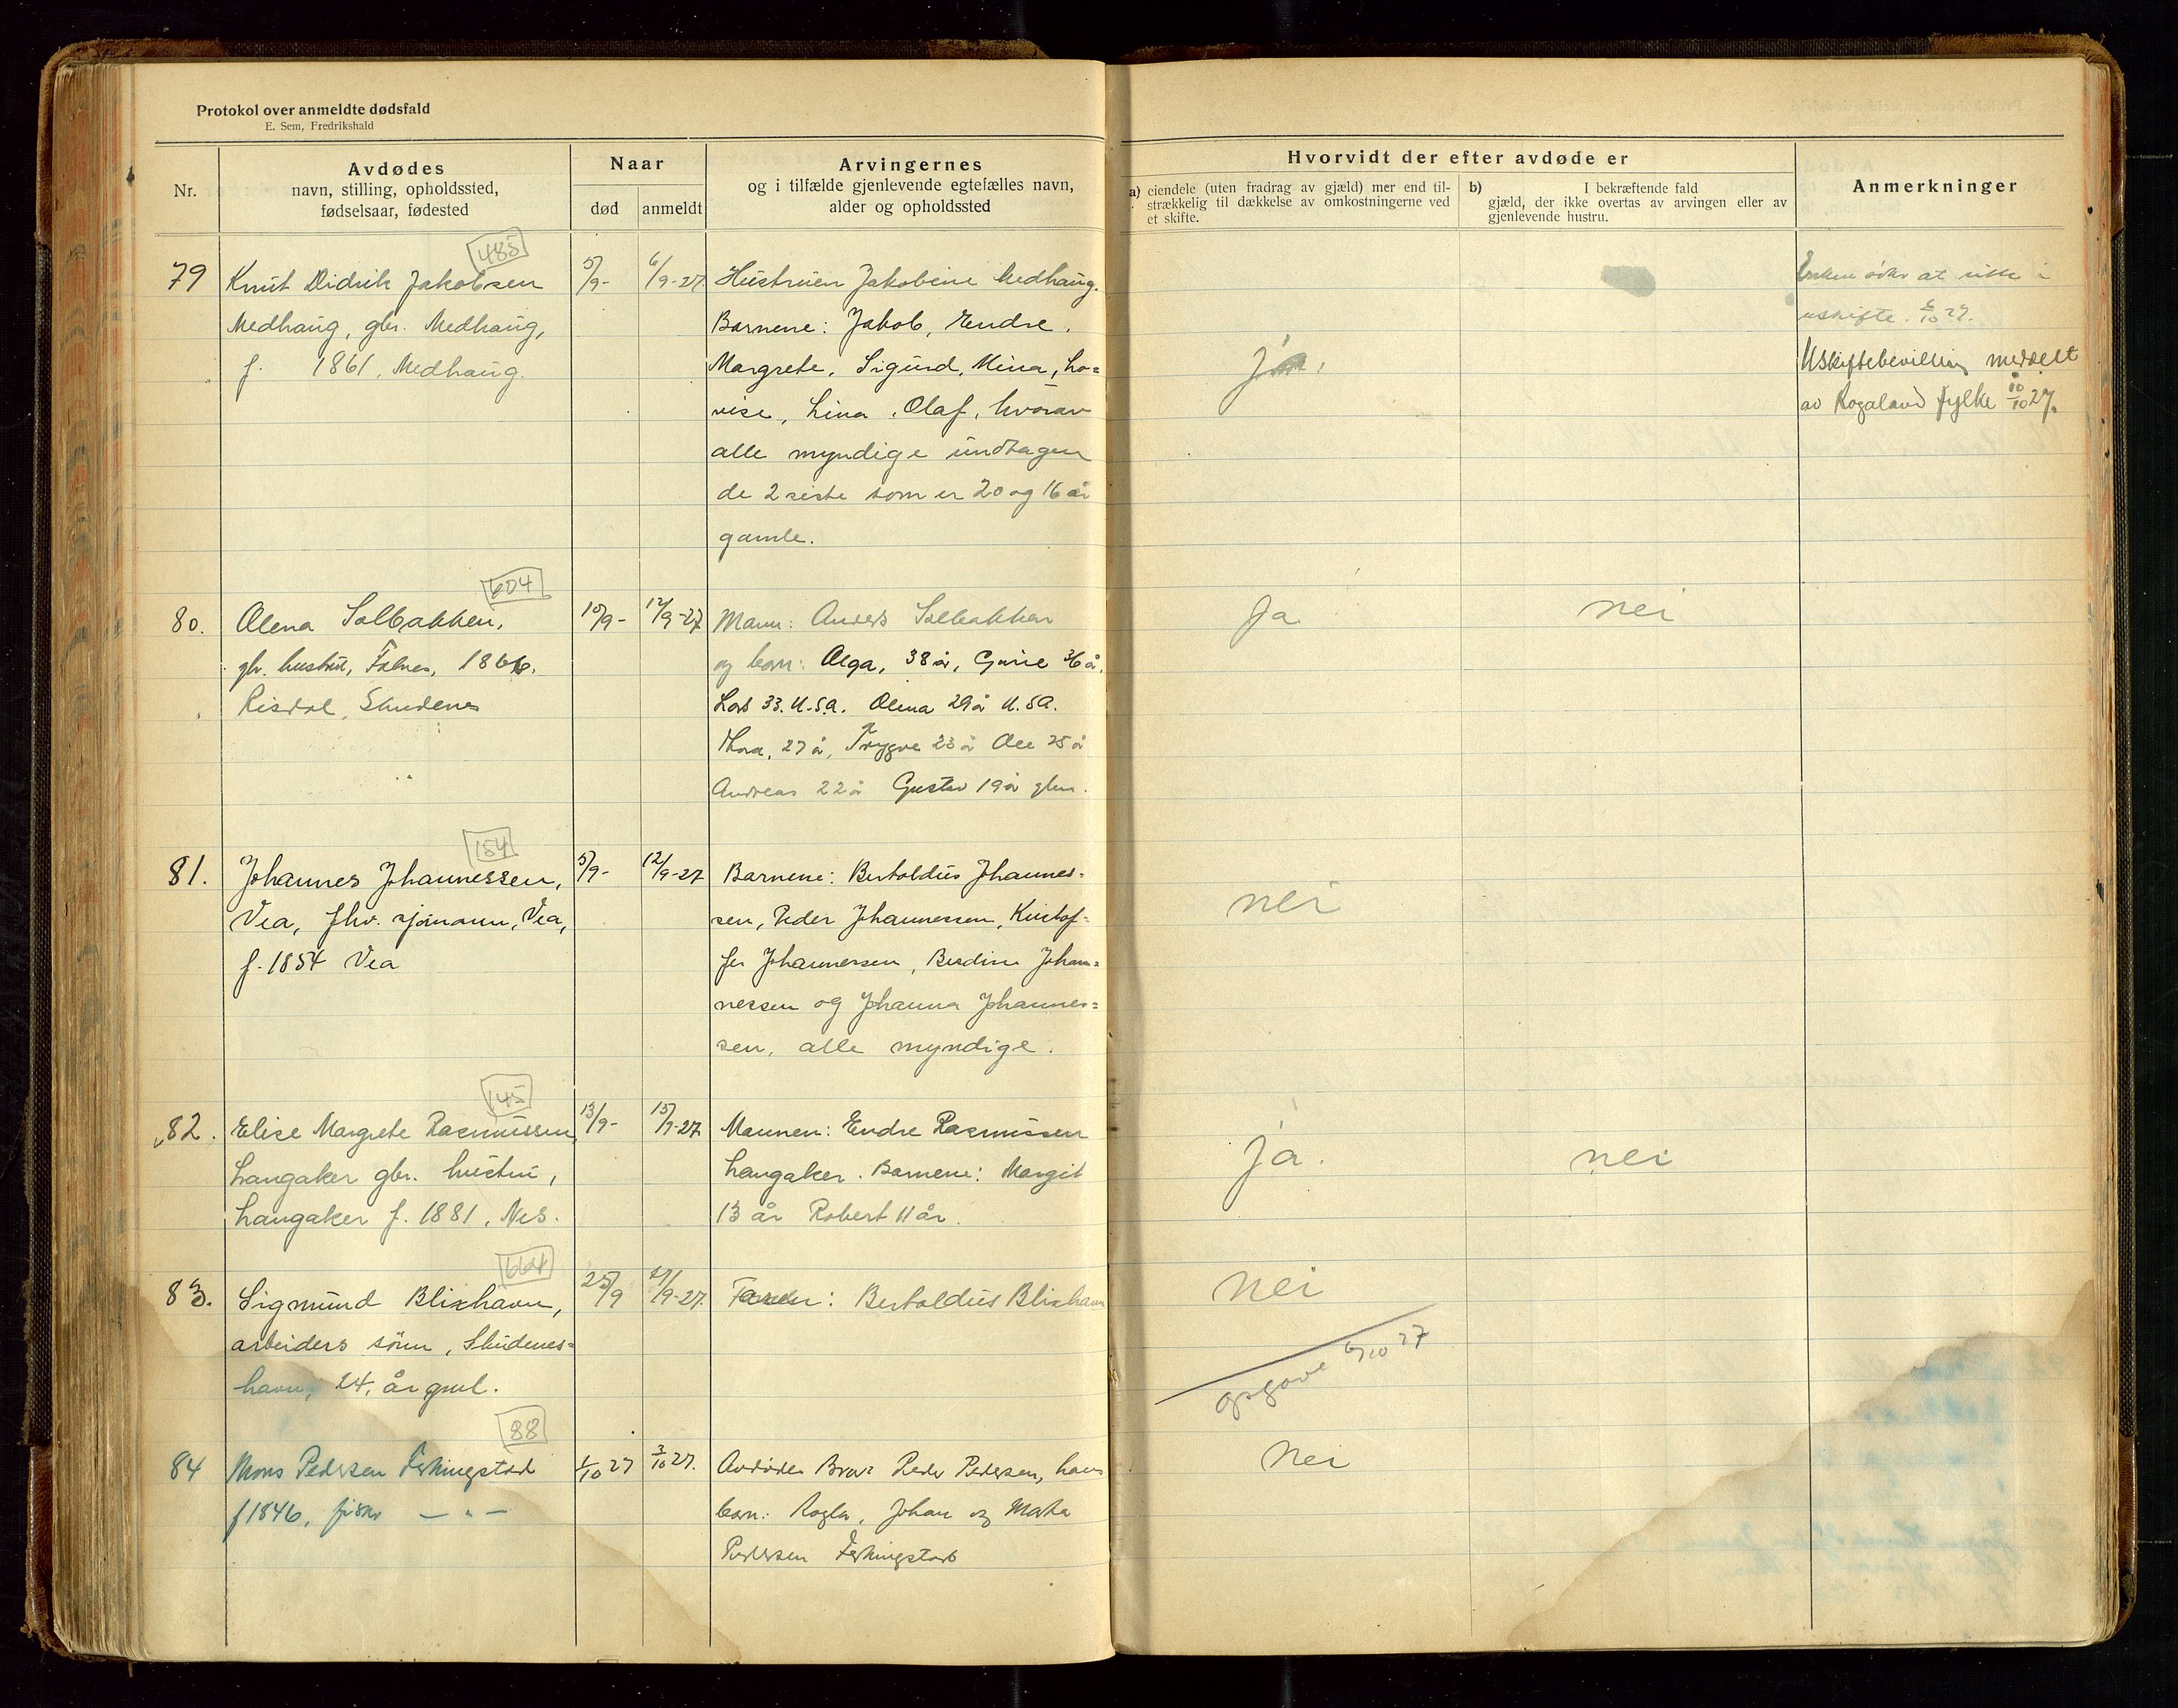 Protokol over anmeldte dødsfald
E. Sem, Fredrikshald
Nr.
Avdødes
navn, stilling, opholdssted,
fødselsaar, fødested
Naar
død
anmeldt
Arvingernes
og i tilfælde gjenlevende egtefælles navn,
alder og opholdssted
Hvorvidt der efter avdøde er
a) eiendele (uten fradrag av gjæld) mer end til-
strækkelig til dækkelse av omkostningerne ved
et skifte.
b) I bekræftende fald
gjæld, der ikke overtas av arvingen eller av
gjenlevende hustru.
Anmerkninger
485
79
Knut Didrik Jakobsen
Medhaug, gbr. Medhaug,
f. 1861, Medhaug.
5/9-
6/9-27.
Hustruen Jakobine Medhaug.
Barnene: Jakob, Endre,
Margrete, Sigurd, Mina, Lo=
vise, Lina, Olaf, hvorav
alle myndige undtagen
de 2 siste som er 20 og 16 år
gamle.
ja.
Enken at sitte i
uskifte. 6/10 27.
Uskiftebevilling meddelt
av Rogaland fylke 10/10 27.
604
80.
Olena Solbakken,
gbr. hustru, Falnes, 1866.
Risdal, Skudenes
10/9-
12/9-27
Mann: Anders Solbakken
og barn: Olga, 38 år, Gurie 36 å.
Lars 33. U.S.A. Olena 29 år U.S.A.
Thora, 27 å, Trygve 23 å Ole 25 å
Andreas 22 å Gustav 19 år
ja
nei
154
81.
Johannes Johannessen,
Vea, fhv. sjømann, Vea,
f. 1854 Vea
5/9-
12/9-27
Barnene: Bertoldius Johannes=
sen, Peder Johannessen, Kristof=
fer Johannessen, Berdine Johan=
nessen og Johanna Johannes=
sen, alle myndige.
nei
145
82.
Elise Margrete Rasmussen
Langaker gbr. hustru,
Langaker f. 1881, Nes.
13/9-
15/9-27
Mannen: Endre Rasmussen
Langaker. Barnene: Margit
13 år Robert 11 år.
ja.
nei
664
83.
Sigmund Blixhavn,
arbeiders sønn, Skudenes=
havn, 24, år gml.
25/9
27/9-27.
Faren: Bertoldius Blixhavn
nei
opgave 6/10 27
88
84
Mons Pedersen Ferkingstad
f 1846, fisker — " —
1/10 27
3/10 27.
Avdødes Bror Peder Pedersen, hans
barn: Johan og Marta
Pedersen Ferkingstad
nei